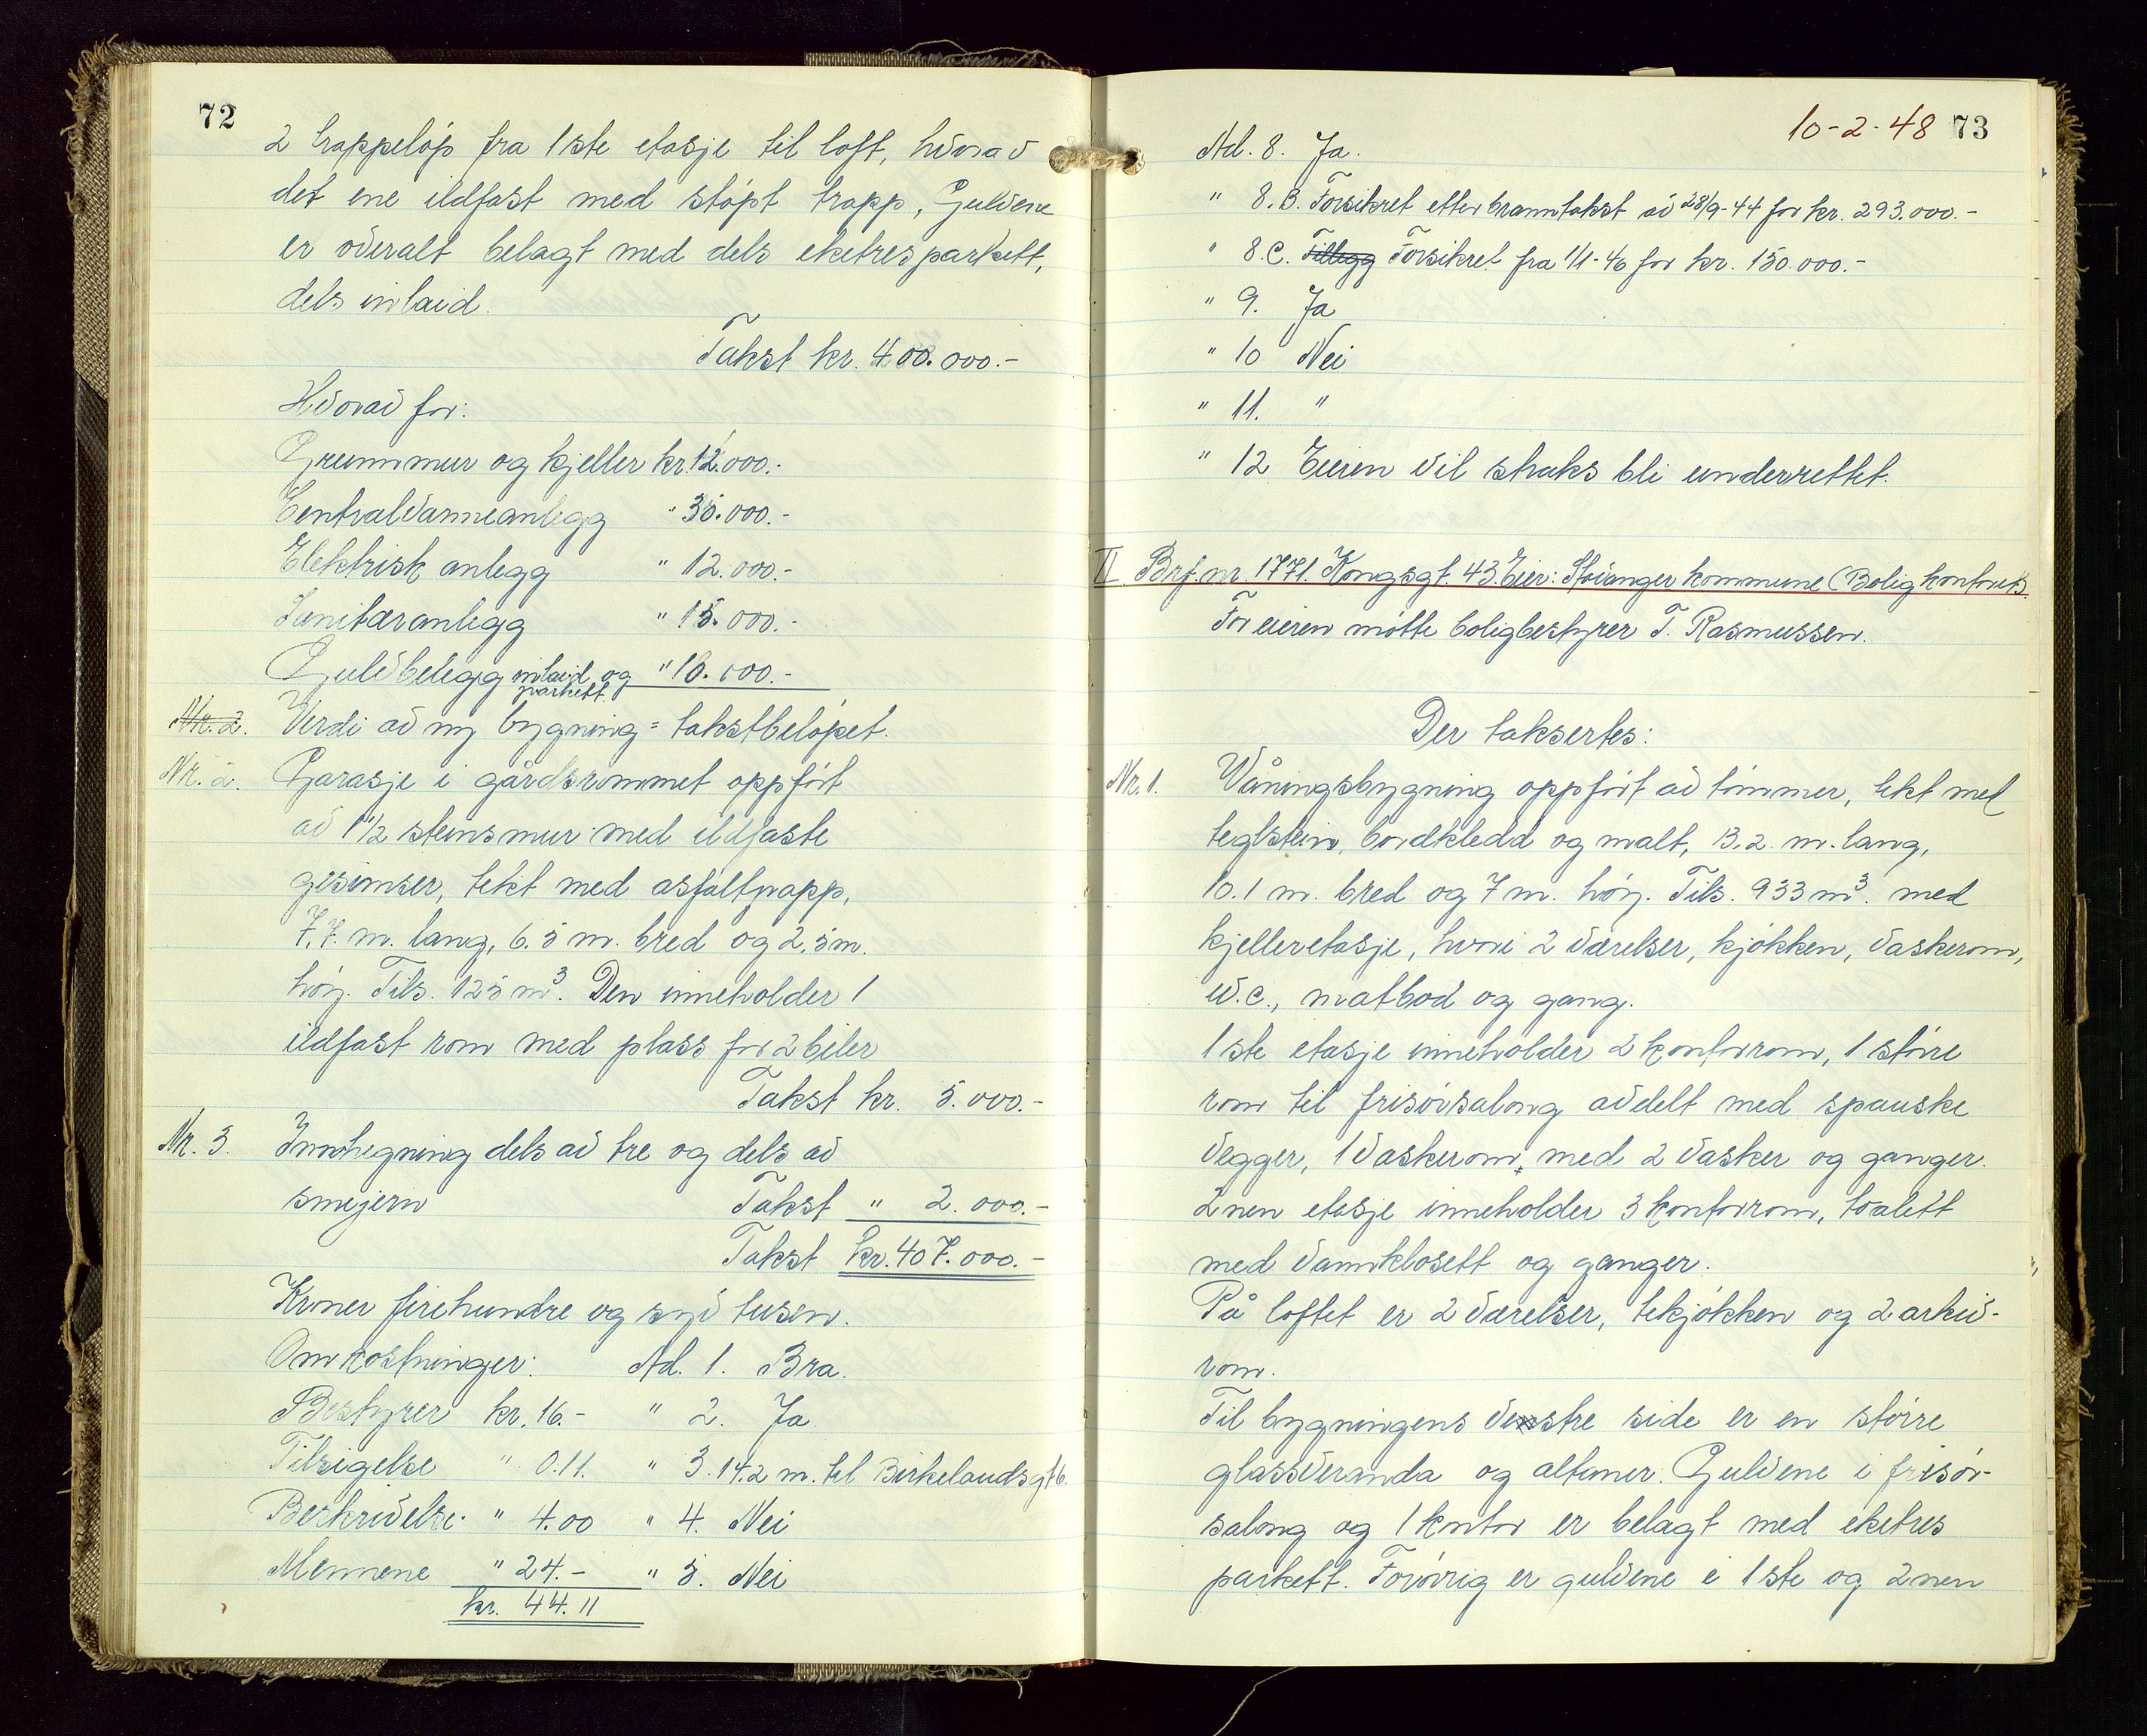 72
2 trappeløp fra 1ste etasje til loft, hvorav
det ene ildfast med støpt trapp, Gulvene
er overalt belagt med dels eketresparkett,
dels inlaid.
Takst kr. 400.000.-
Hvorav for:
Grunnmur og kjeller kr. 12.000.-
Centralvarmeanlegg " 35.000.-
Elektrisk anlegg " 12.000.-
Sanitæranlegg " 15.000.-
Gulvbelegg inlaid og parkett. " 10.000.-
Nr. 2. Verdi av ny bygning = takstbeløpet.
Nr. 2. Garasje i gårdsrommet oppført
av 1 1/2 steins mur med ildfaste
gesimser, tekt med asfaltpapp,
7,7. m. lang, 6.5 m. bred og 2,5 m.
høy. Tils. 125 m³. Den inneholder 1
ildfast rom med plass for 2 biler
Takst kr. 5.000.-
Nr. 3. Innhegning dels av tre og dels av
smijern Takst " 2.000.-
Takst kr. 407.000.-
Kroner firehundre og syv tusen.
Omkostninger: Ad. 1. Bra.
Bestyrer kr. 16.- " 2. Ja
Tilsigelse " 0.11. " 3. 14.2 m. til Birkelandsgt 6.
Beskrivelse " 4.00 " 4. Nei
Mennene " 24.- " 5. Nei
kr. 44.11
10-2-48 73
Ad. 8. Ja.
" 8. B. Forsikret etter branntakst av 28/9-44 for kr. 293.000.-
" 8. C. Tillegg Forsikret fra 1/1-46 for kr. 150.000.-
" 9. Ja
" 10 Nei
" 11. "
" 12 Eieren vil straks bli underrettet.
II. Brf. nr. 1771. Kongsgt. 43. Eier: Stavanger kommune (Boligkontoret).
For eieren møtte boligbestyrer T. Rasmussen.
Der taksertes:
Nr. 1. Våningsbygning oppført av tømmer, tekt med
teglstein, bordkledd og malt, 13.2. m. lang,
10.1 m. bred og 7 m. høy. Tils. 933 m³. med
kjelleretasje, hvori 2 værelser, kjøkken, vaskerom,
W.c., matbod og gang.
1ste etasje inneholder 2 kontorrom, 1 større
rom til frisørsalong avdelt med spanske
vegger, 1 vaskerom, med 2 vasker og ganger.
2nen etasje inneholder 3 kontorrom, toalett
med vannklosett og ganger.
På loftet er 2 værelser, tekjøkken og 2 arkiv-
rom.
Til bygningens venstre side er en større
glassveranda og altaner. Gulvene i frisør-
salong og 1 kontor er belagt med eketres
parkett. Forøvrig er gulvene i 1ste og 2nen